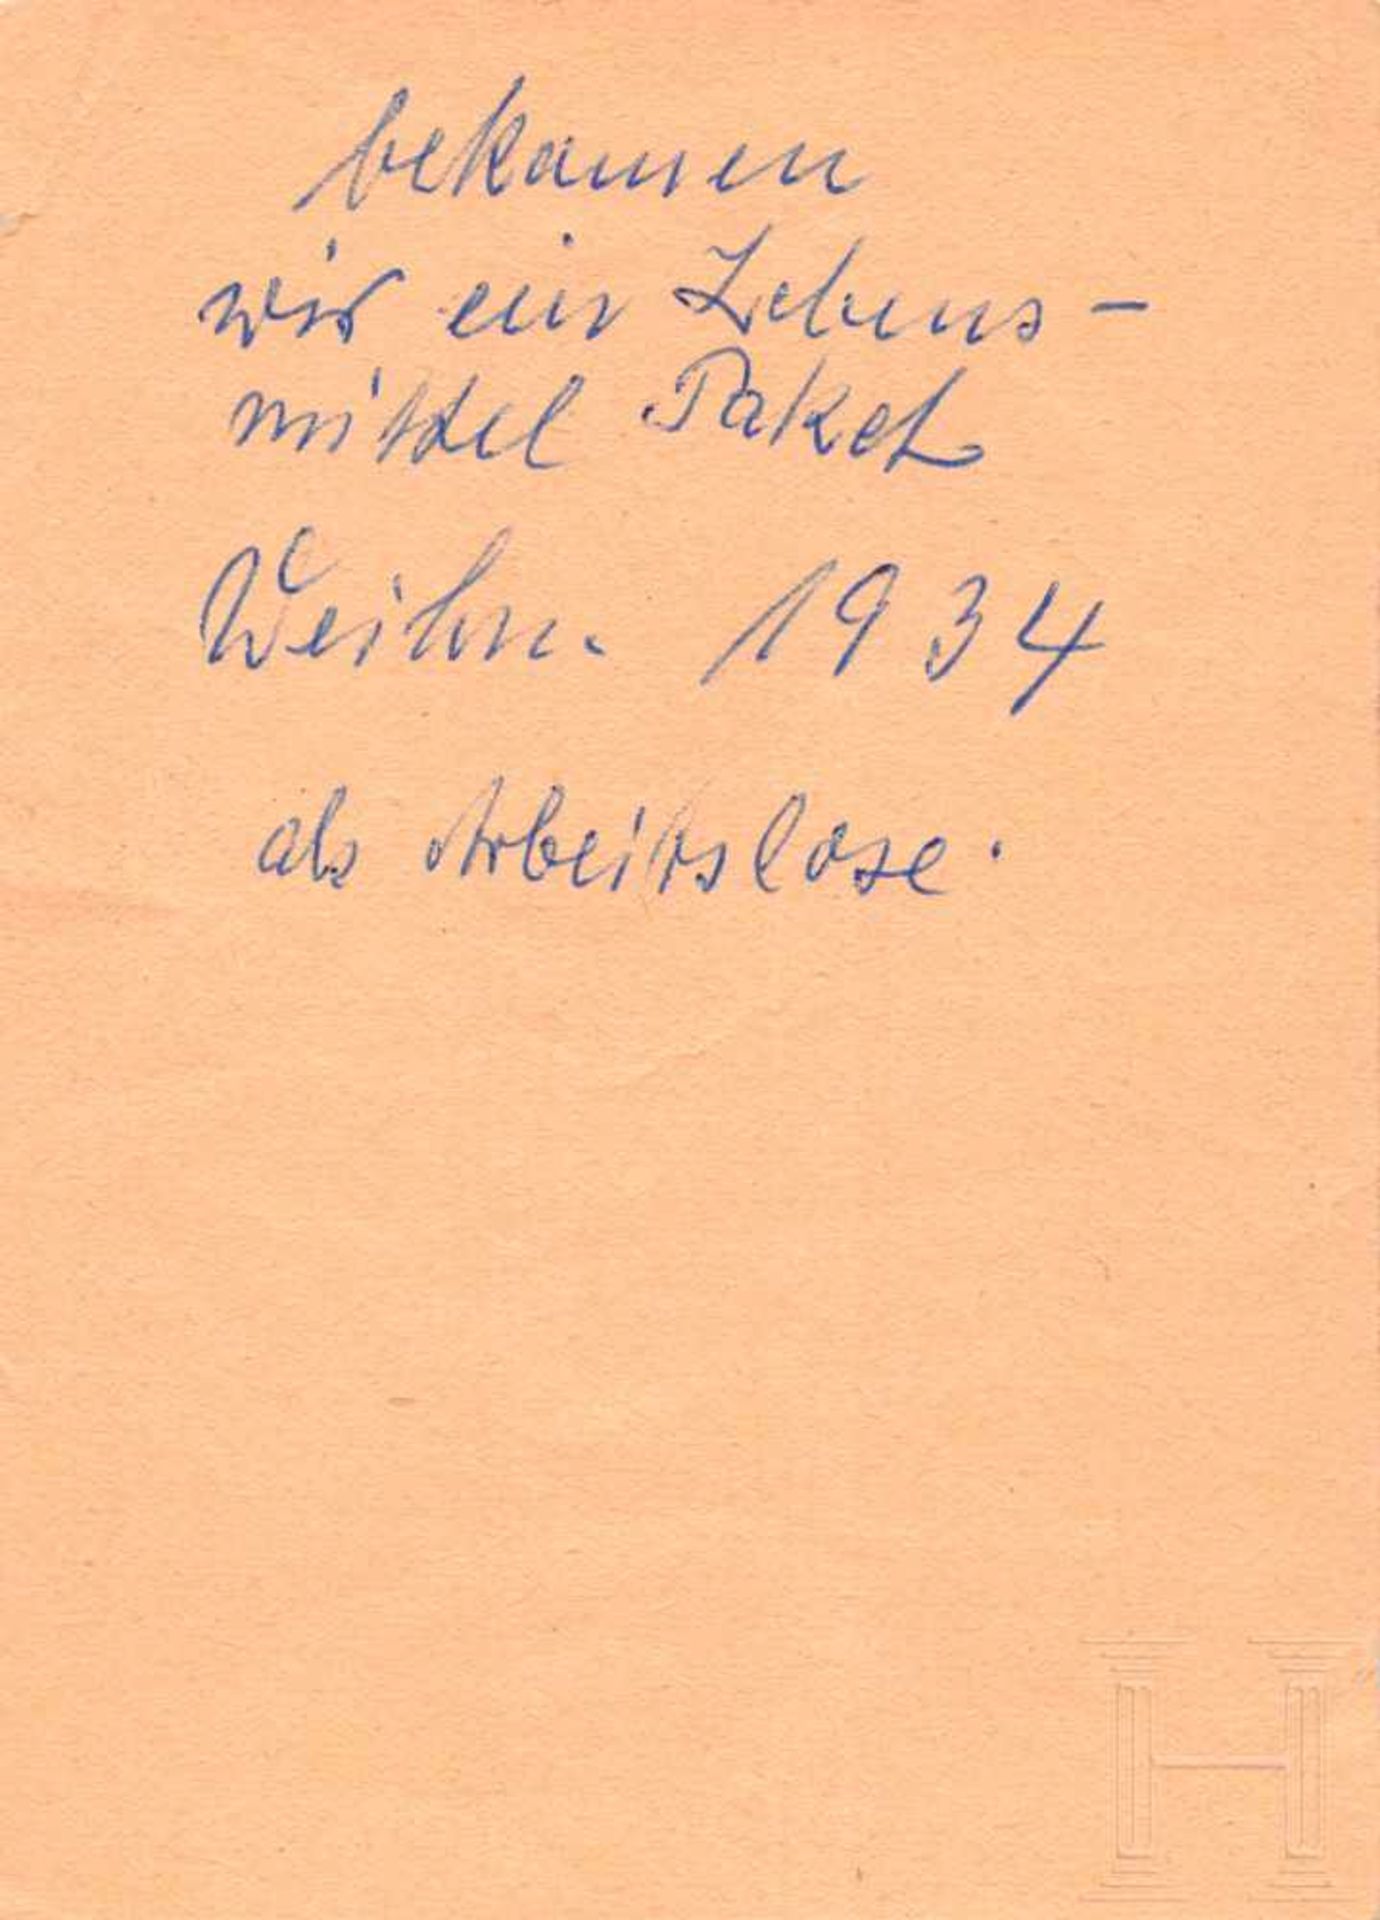 bekamen
wir ein Lebens-
mittel Paket
Weihn. 1934
als Arbeitslose.
H